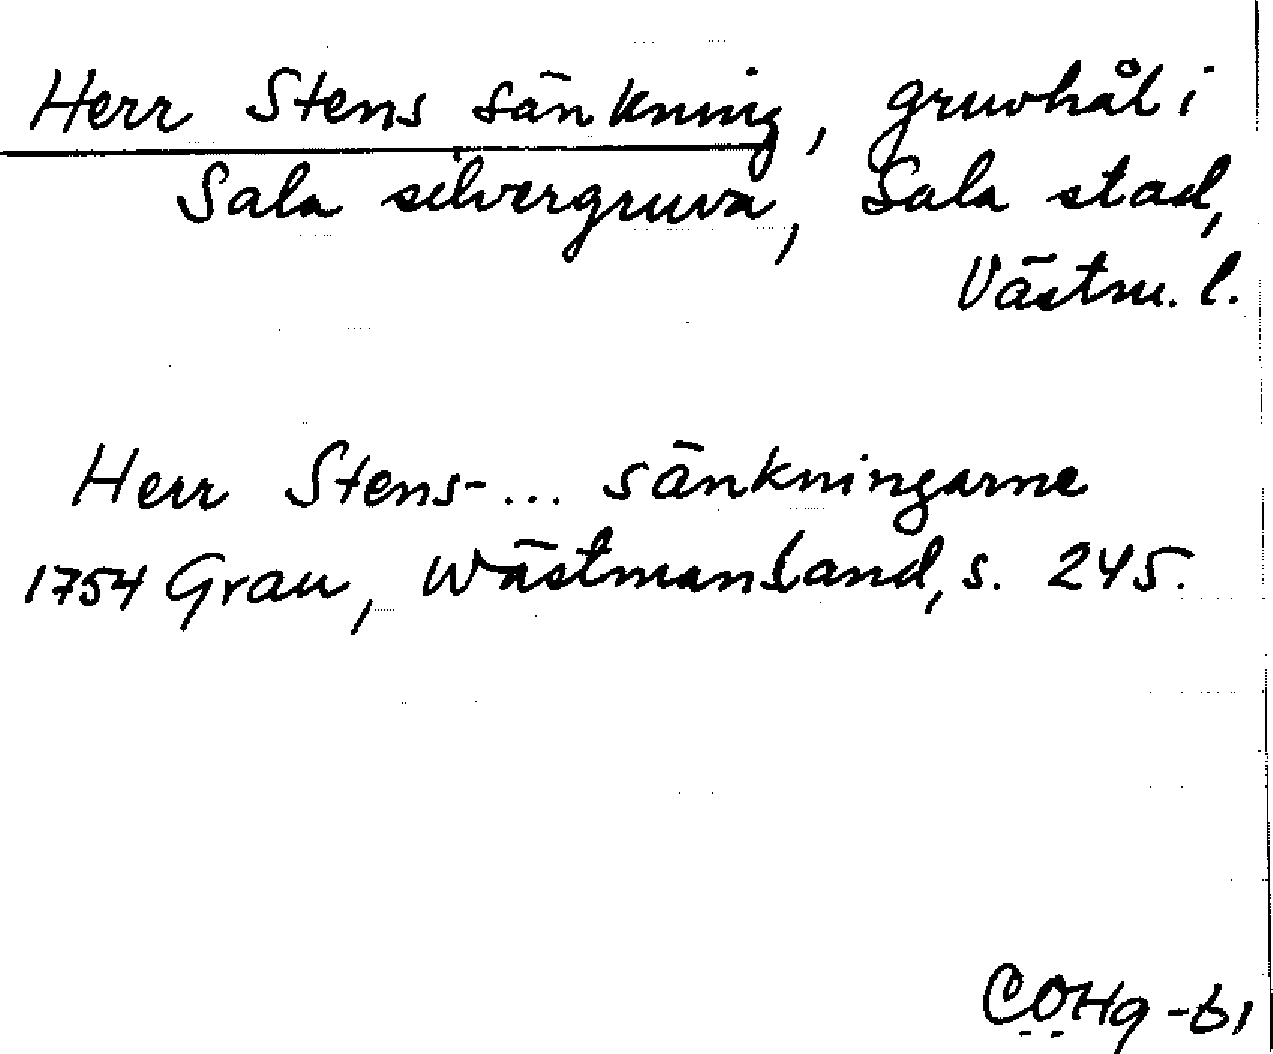 Herr Stens sänkning, gruvhål i
Sala silvergruva, Sala stad,
Västm. l.
Herr Stens-... sänkningarne
1754 Grau, Wästmanland, s. 245.
COHg -61